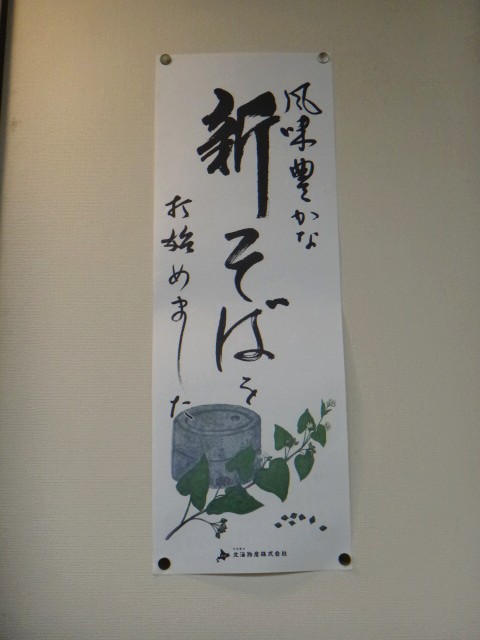 風味豊かな
新そばを
打始めました
北海物産株式会社